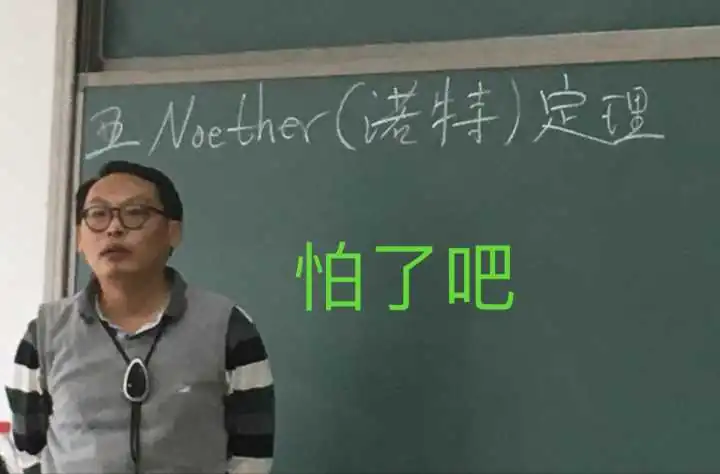 五 Noether(诺特)定理
怕了吧